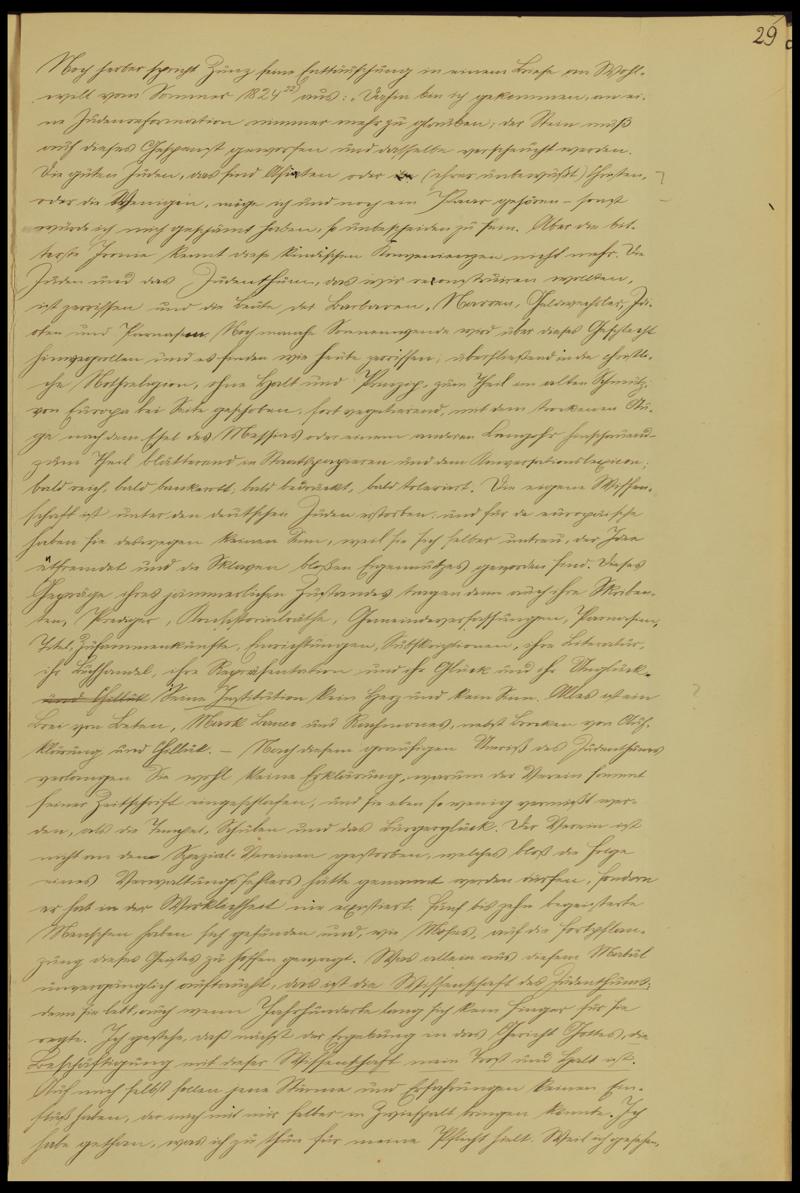 29
Noch herber spricht Zunz seine Enttäuschung in einem Briefe an Wohl-
will vom Sommer 1824 aus: „Dahin bin ich gekommen, an ei-
ne Judenreformation nimmer mehr zu glauben; der Stein muß
auf dieses Gespenst geworfen und dasselbe verscheucht werden.
Die guten Juden, das sind Asiaten oder (ihrer unbewußt) Christen,
oder die Wenigen, möge ich und noch ein Paar gehören – sonst
würde ich mich geschämt haben, so unbescheiden zu sein. Aber die bit-
terste Ironie kennt diese kindischen Konvenienzen nicht mehr. Die
Juden und das Judenthum, das wir rekonstruiren wollten,
ist zerrissen und die Beute der Barbaren, Narren, Geldwechsler, Idi-
oten und Parnasim. Noch manche Sonnenwende wird über dieses Geschlecht
hinwegrollen und es finden wie heute zerrissen, überfließend in die christli-
che Nothreligion, ohne Halt und Prinzip, zum Theil im alten Schmutz,
von Europa bei Seite geschoben, fort vegetierend, mit dem trockenen Au-
ge nach dem Esel des Messias oder einem anderen Langohr hinschauend –
zum Theil blätternd in Staatspapieren und dem Konversationslexicon;
bald reich, bald bankerott; bald bedrückt, bald tolerirt. Die eigene Wissen-
schaft ist unter den deutschen Juden erstorben, und für die europäische
haben sie deswegen keinen Sinn, weil sie sich selber untreu, der Idee
entfremdet und die Sklaven bloßen Eigennutzes geworden sind. Dieses
Gepräge ihres jämmerlichen Zustandes tragen denn auch ihre Skriben-
ten, Prediger, Konsistorialräthe, Gemeindeverfassungen, Parnasim,
Titel, Zusammenkünfte, Einrichtungen, Subskriptionen, ihre Literatur,
ihr Buchhandel, ihre Repräsentation und ihr Glück und ihr Unglück.
Seine Institution kein Herz und kein Sinn. Alles ist ein
Brei von Beten, Mark Banco und Rachmones, nebst Brocken von Auf-
klärung und Chilluk. – Nach diesem grausigen Umriß des Judenthums
verlangen Sie wohl keine Erklärung, warum der Verein sammt
seiner Zeitschrift eingeschlafen, und sie eben so wenig vermißt wer-
den, als die Tempel, Schulen und das Bürgerglück. Der Verein ist
nicht an den Spezial-Vereinen gestorben, welches bloß die Folge
eines Verwaltungsfehlers hätte genannt werden dürfen, sondern
er hat in der Wirklichkeit nie existiert. Fünf bis zehn begeisterte
Menschen haben sich gefunden und, wie Moses, auf die Fortpflan-
zung dieses Geistes zu hoffen gewagt. Was allein aus diesem Mabul
unvergänglich auftaucht, das ist die Wissenschaft des Judenthums;
denn sie lebt, auch wenn Jahrhunderte lang sich kein Finger für sie
regte. Ich gestehe, daß nächst der Ergebung in das Gericht Gottes, die
Beschäftigung mit dieser Wissenschaft mein Trost und Halt ist.
Auf mich selbst sollen jene Stürme und Erfahrungen keinen Ein-
fluß haben, der mich mit mir selber in Zwiespalt bringen könnte. Ich
habe gethan, was ich zu thun für meine Pflicht hielt. Weil ich gesehen,